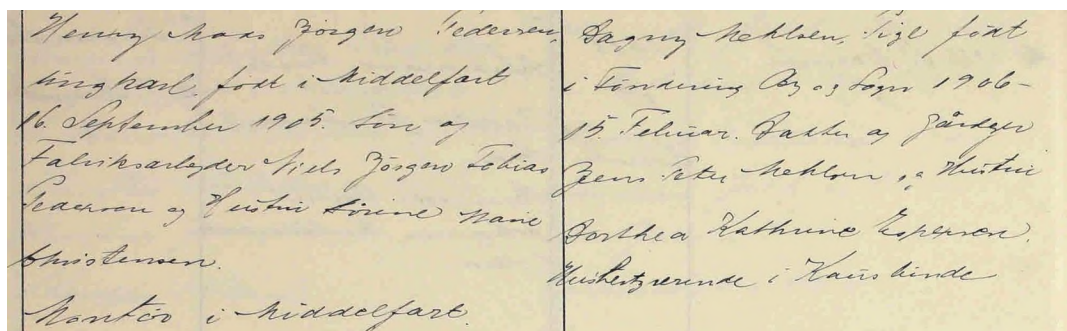 Henny Maas Jörgen Pedersen,
ungkarl, født i Middelfart
16. September 1905. Søn og
Fabriksarbejder Niels Jörgen Tobias
Pedersen og Hustru Sørine Marie
Christensen.
Montør i Middelfart.
Dagny Mehlsen, Pige født
i Tøndering By og Sogn 1906-
15. Februar. Datter og Gårdejer
Jens Peter Mehlsen og Hustru
Dorthea Kathrine Espersen.
Husbestyrerende i Kauslunde